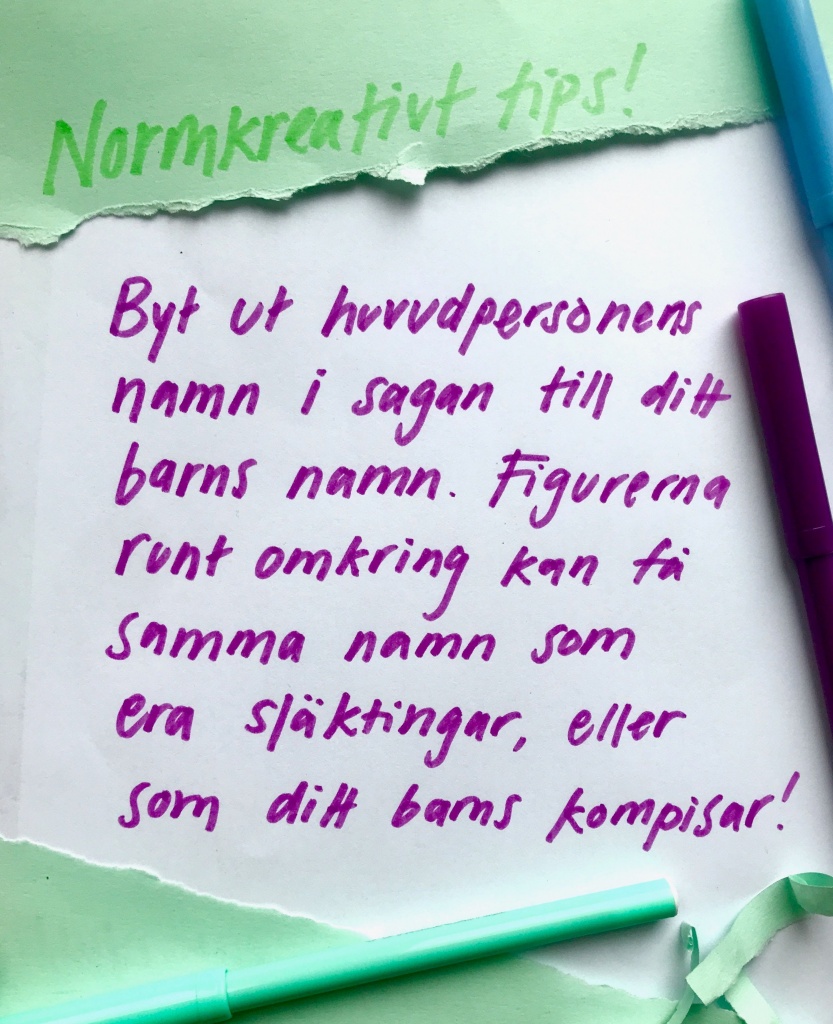 Normkreativt tips!
Byt ut huvudpersonens
namn i sagan till ditt
barns namn. Figurerna
runt omkring kan få
samma namn som
era släktingar, eller
som ditt barns kompisar!